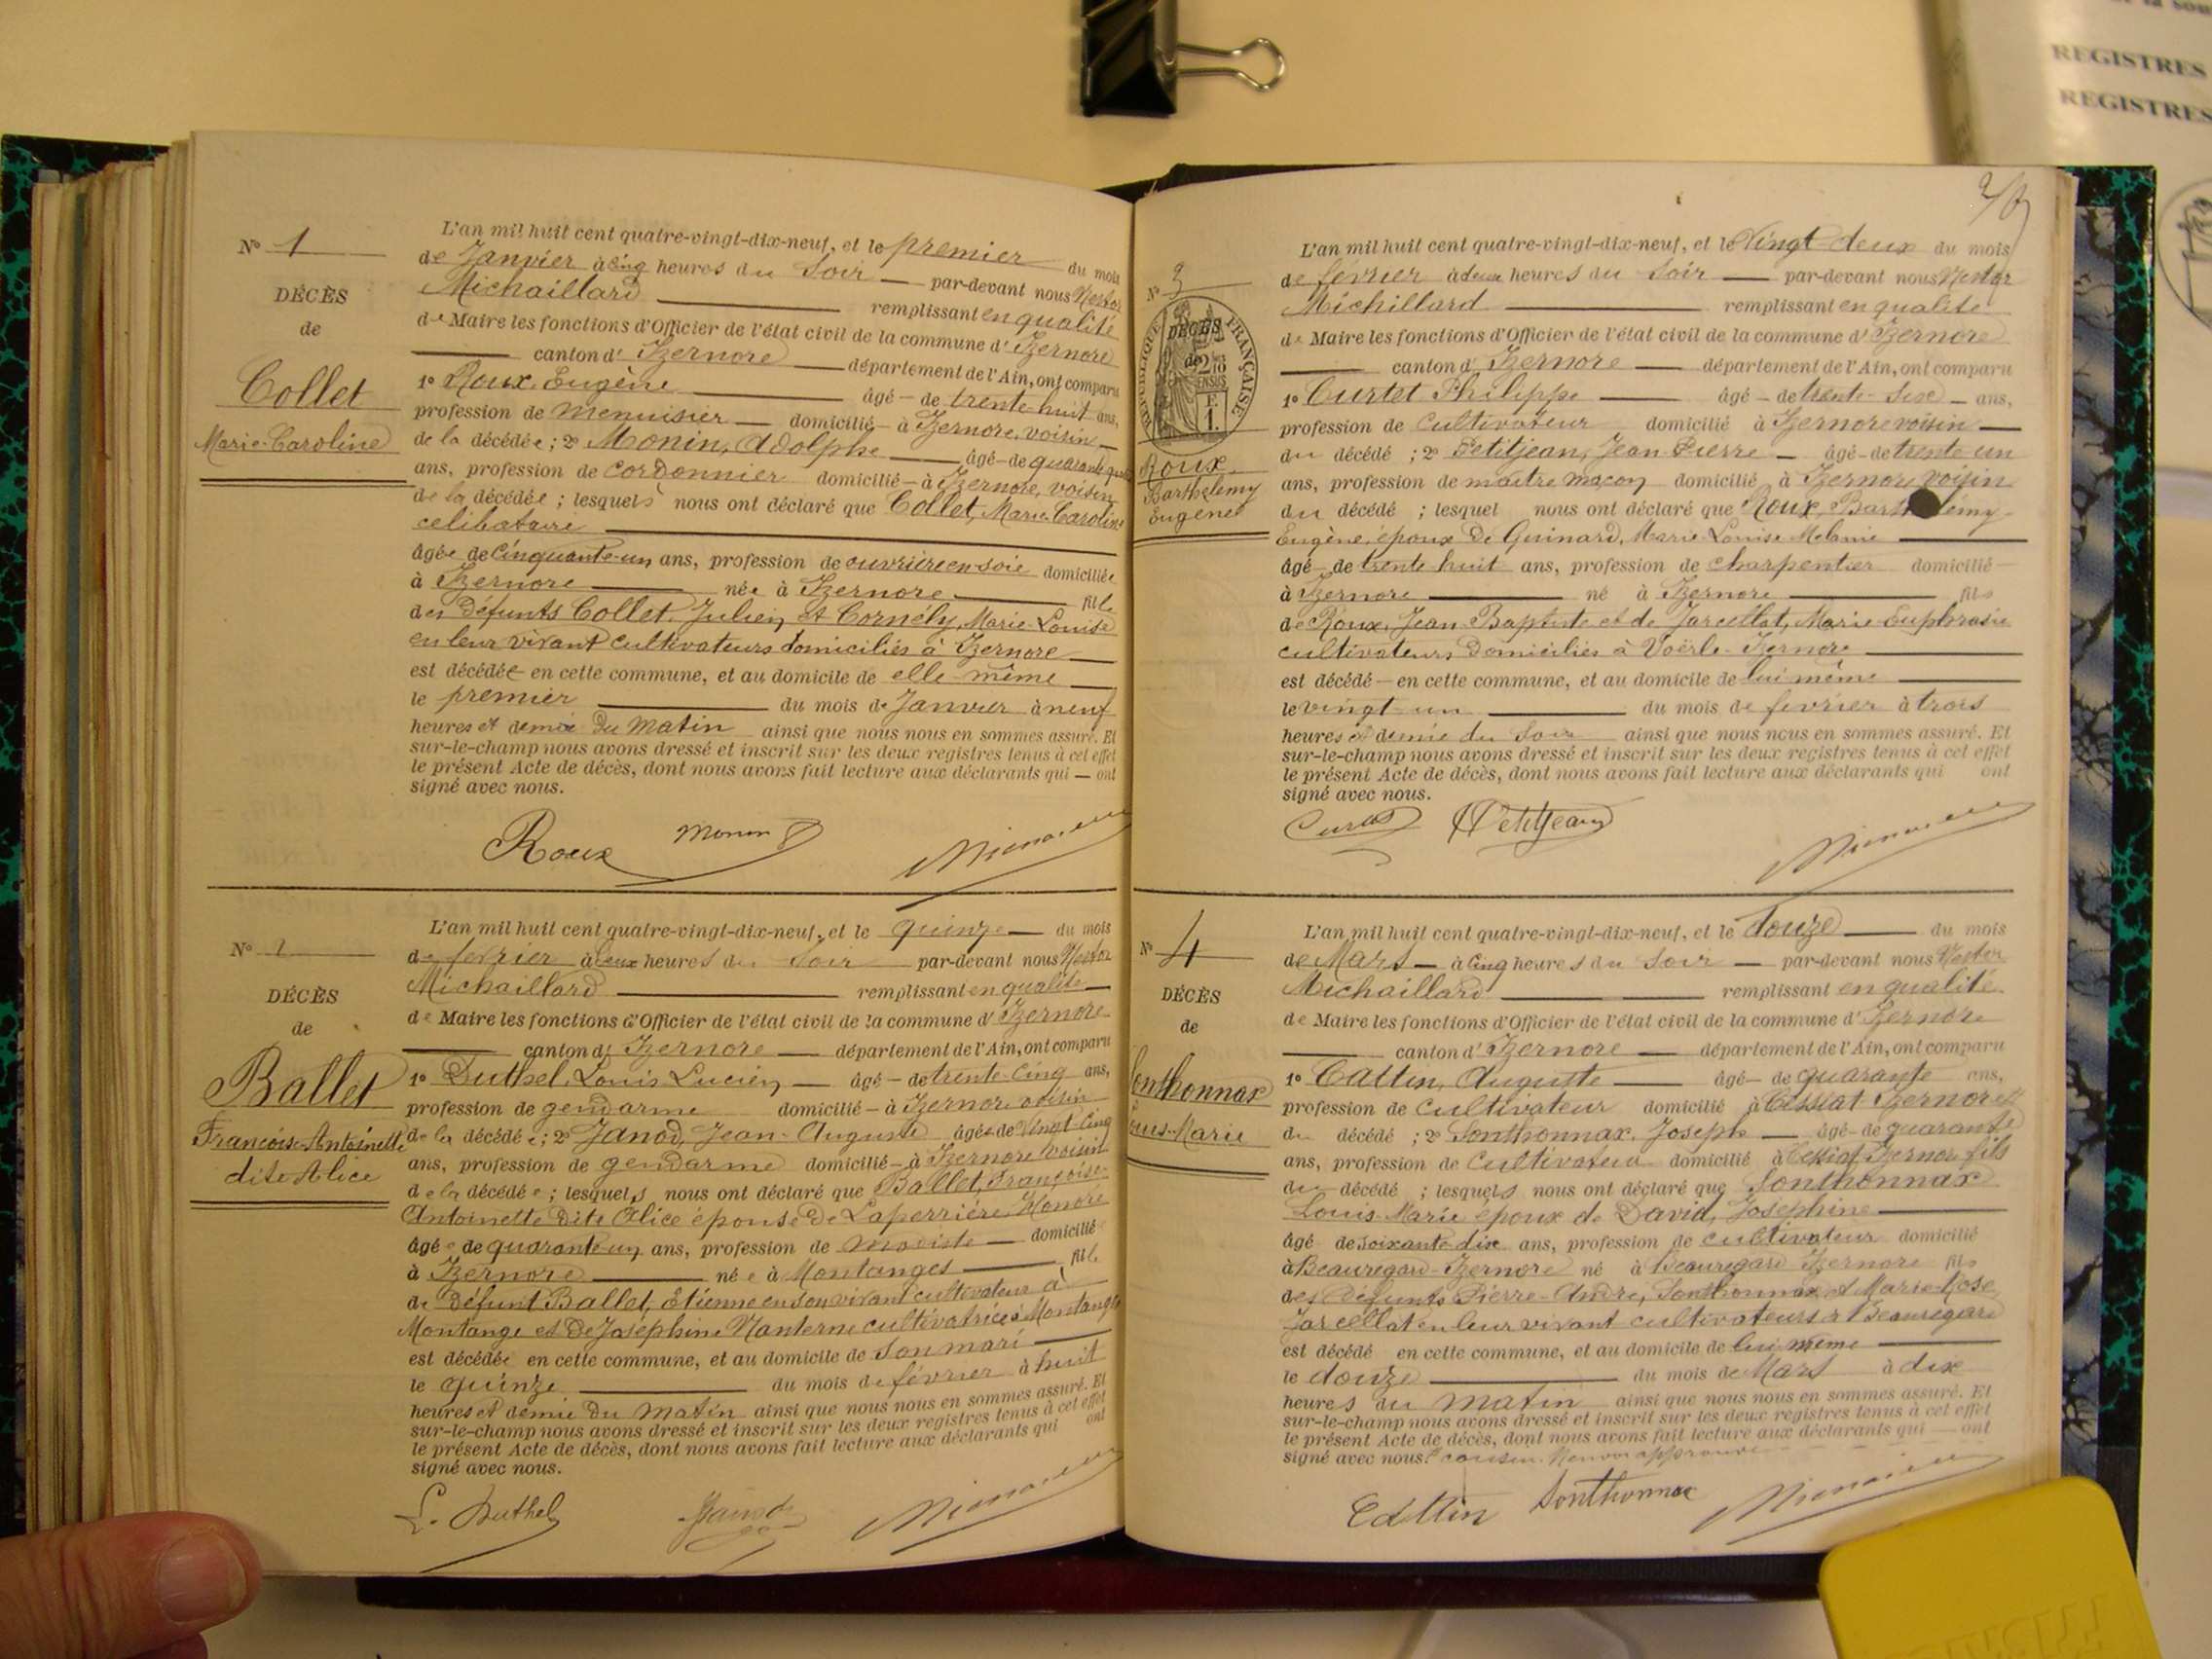 N° 1
DÉCÈS
de
Collet
Marie-Caroline
L'an mil huit cent quatre-vingt-dix-neuf, et le premier du mois
de Janvier à cinq heures du Soir — par-devant nous Nestor
Michaillard remplissant en qualité
de Maire les fonctions d'Officier de l'état civil de la commune d'Izernore
canton d'Izernore — département de l'Ain, ont comparu
1° Roux, Eugène âgé — de trente-huit ans,
profession de menuisier — domicilié — à Izernore, voisin
de la décédée ; 2° Monin, Adolphe âgé — de quarante
ans, profession de cordonnier domicilié — à Izernore, voisin
de la décédée ; lesquels nous ont déclaré que Collet, Marie-Caroline
célibataire
âgée de cinquante-un ans, profession de ouvrière en soie domiciliée
à Izernore née à Izernore fille
des défunts Collet, Julien et Cornély, Marie-Louise
en leur vivant cultivateurs domiciliés à Izernore
est décédée en cette commune, et au domicile de elle-même
le premier du mois de Janvier à neuf
heures et demie du matin ainsi que nous nous en sommes assuré. Et
sur-le-champ nous avons dressé et inscrit sur les deux registres tenus à cet effet
le présent Acte de décès, dont nous avons fait lecture aux déclarants qui — ont
signé avec nous.
Roux Monin
N°
DÉCÈS
de
Ballet
Françoise-Antoinette
dite Alice
L'an mil huit cent quatre-vingt-dix-neuf, et le quinze — du mois
de février à deux heures du Soir par-devant nous Nestor
Michaillard remplissant en qualité
de Maire les fonctions d'Officier de l'état civil de la commune d'Izernore
canton d'Izernore — département de l'Ain, ont comparu
1° Duthel, Louis Lucien — âgé — de trente-cinq ans,
profession de gendarme domicilié — à Izernore voisin
de la décédée ; 2° Janod, Jean-Auguste âgé de vingt-cinq
ans, profession de gendarme domicilié — à Izernore voisin
de la décédée ; lesquels nous ont déclaré que Ballet, Françoise-
Antoinette dite Alice épouse de Laperrière Honoré
âgée de quarante-un ans, profession de modiste — domicilié
à Izernore née à Montanges fille
de défunt Ballet, Étienne en son vivant cultivateur à
Montange et de Joséphine Nanterne cultivatrice à Montange
est décédée en cette commune, et au domicile de son mari
le quinze du mois de février à huit
heures et demie du matin ainsi que nous nous en sommes assuré. Et
sur-le-champ nous avons dressé et inscrit sur les deux registres tenus à cet effet
le présent Acte de décès, dont nous avons fait lecture aux déclarants qui ont
signé avec nous.
L. Duthel Janod
N° 3
DÉCÈS
de
RÉPUBLIQUE FRANÇAISE
Roux
Barthélemy
Eugène
L'an mil huit cent quatre-vingt-dix-neuf, et le vingt-deux du mois
de février à deux heures du Soir — par-devant nous Nestor
Michillard remplissant en qualité
de Maire les fonctions d'Officier de l'état civil de la commune d'Izernore
canton d'Izernore — département de l'Ain, ont comparu
1° Curtet Philippe âgé — de trente-six — ans,
profession de cultivateur domicilié à Izernore voisin
du décédé ; 2° Petitjean, Jean Pierre — âgé — de trente un
ans, profession de maître maçon domicilié à Izernore voisin
du décédé ; lesquel nous ont déclaré que Roux, Barthélemy-
Eugène, époux de Guinard, Marie Louise Mélanie
âgé — de trente huit ans, profession de charpentier domicilié —
à Izernore né à Izernore fils
de Roux, Jean-Baptiste et de Jarcellat, Marie-Euphrasie
cultivateurs domiciliés à Voërle-Izernore
est décédé — en cette commune, et au domicile de lui même
le vingt-un du mois de février à trois
heures et demie du Soir ainsi que nous nous en sommes assuré. Et
sur-le-champ nous avons dressé et inscrit sur les deux registres tenus à cet effet
le présent Acte de décès, dont nous avons fait lecture aux déclarants qui ont
signé avec nous.
Curtet Petitjean
N° 4
DÉCÈS
de
Sonthonnax
Louis-Marie
L'an mil huit cent quatre-vingt-dix-neuf, et le douze du mois
de Mars — à cinq heures du Soir — par-devant nous Nestor
Michaillard remplissant en qualité
de Maire les fonctions d'Officier de l'état civil de la commune d'Izernore
canton d'Izernore — département de l'Ain, ont comparu
1° Cattin, Auguste âgé — de quarante ans,
profession de cultivateur domicilié à Cessiat Izernore
du décédé ; 2° Sonthonnax, Joseph — âgé — de quarante
ans, profession de cultivateur domicilié à Cessiat Izernore fils
du décédé ; lesquels nous ont déclaré que Sonthonnax
Louis-Marie époux de David, Joséphine
âgé de soixante-dix ans, profession de cultivateur domicilié
à Beauregard-Izernore né à Beauregard Izernore fils
des défunts Pierre-André, Sonthonnax et Marie-Rose
Jarcellat en leur vivant cultivateurs à Beauregard
est décédé en cette commune, et au domicile de lui même
le douze du mois de Mars à dix
heures du matin ainsi que nous nous en sommes assuré. Et
sur-le-champ nous avons dressé et inscrit sur les deux registres tenus à cet effet
le présent Acte de décès, dont nous avons fait lecture aux déclarants qui — ont
signé avec nous. cousin. Renvoi approuvé
Cattin Sonthonnax
REGISTRES
REGISTRES